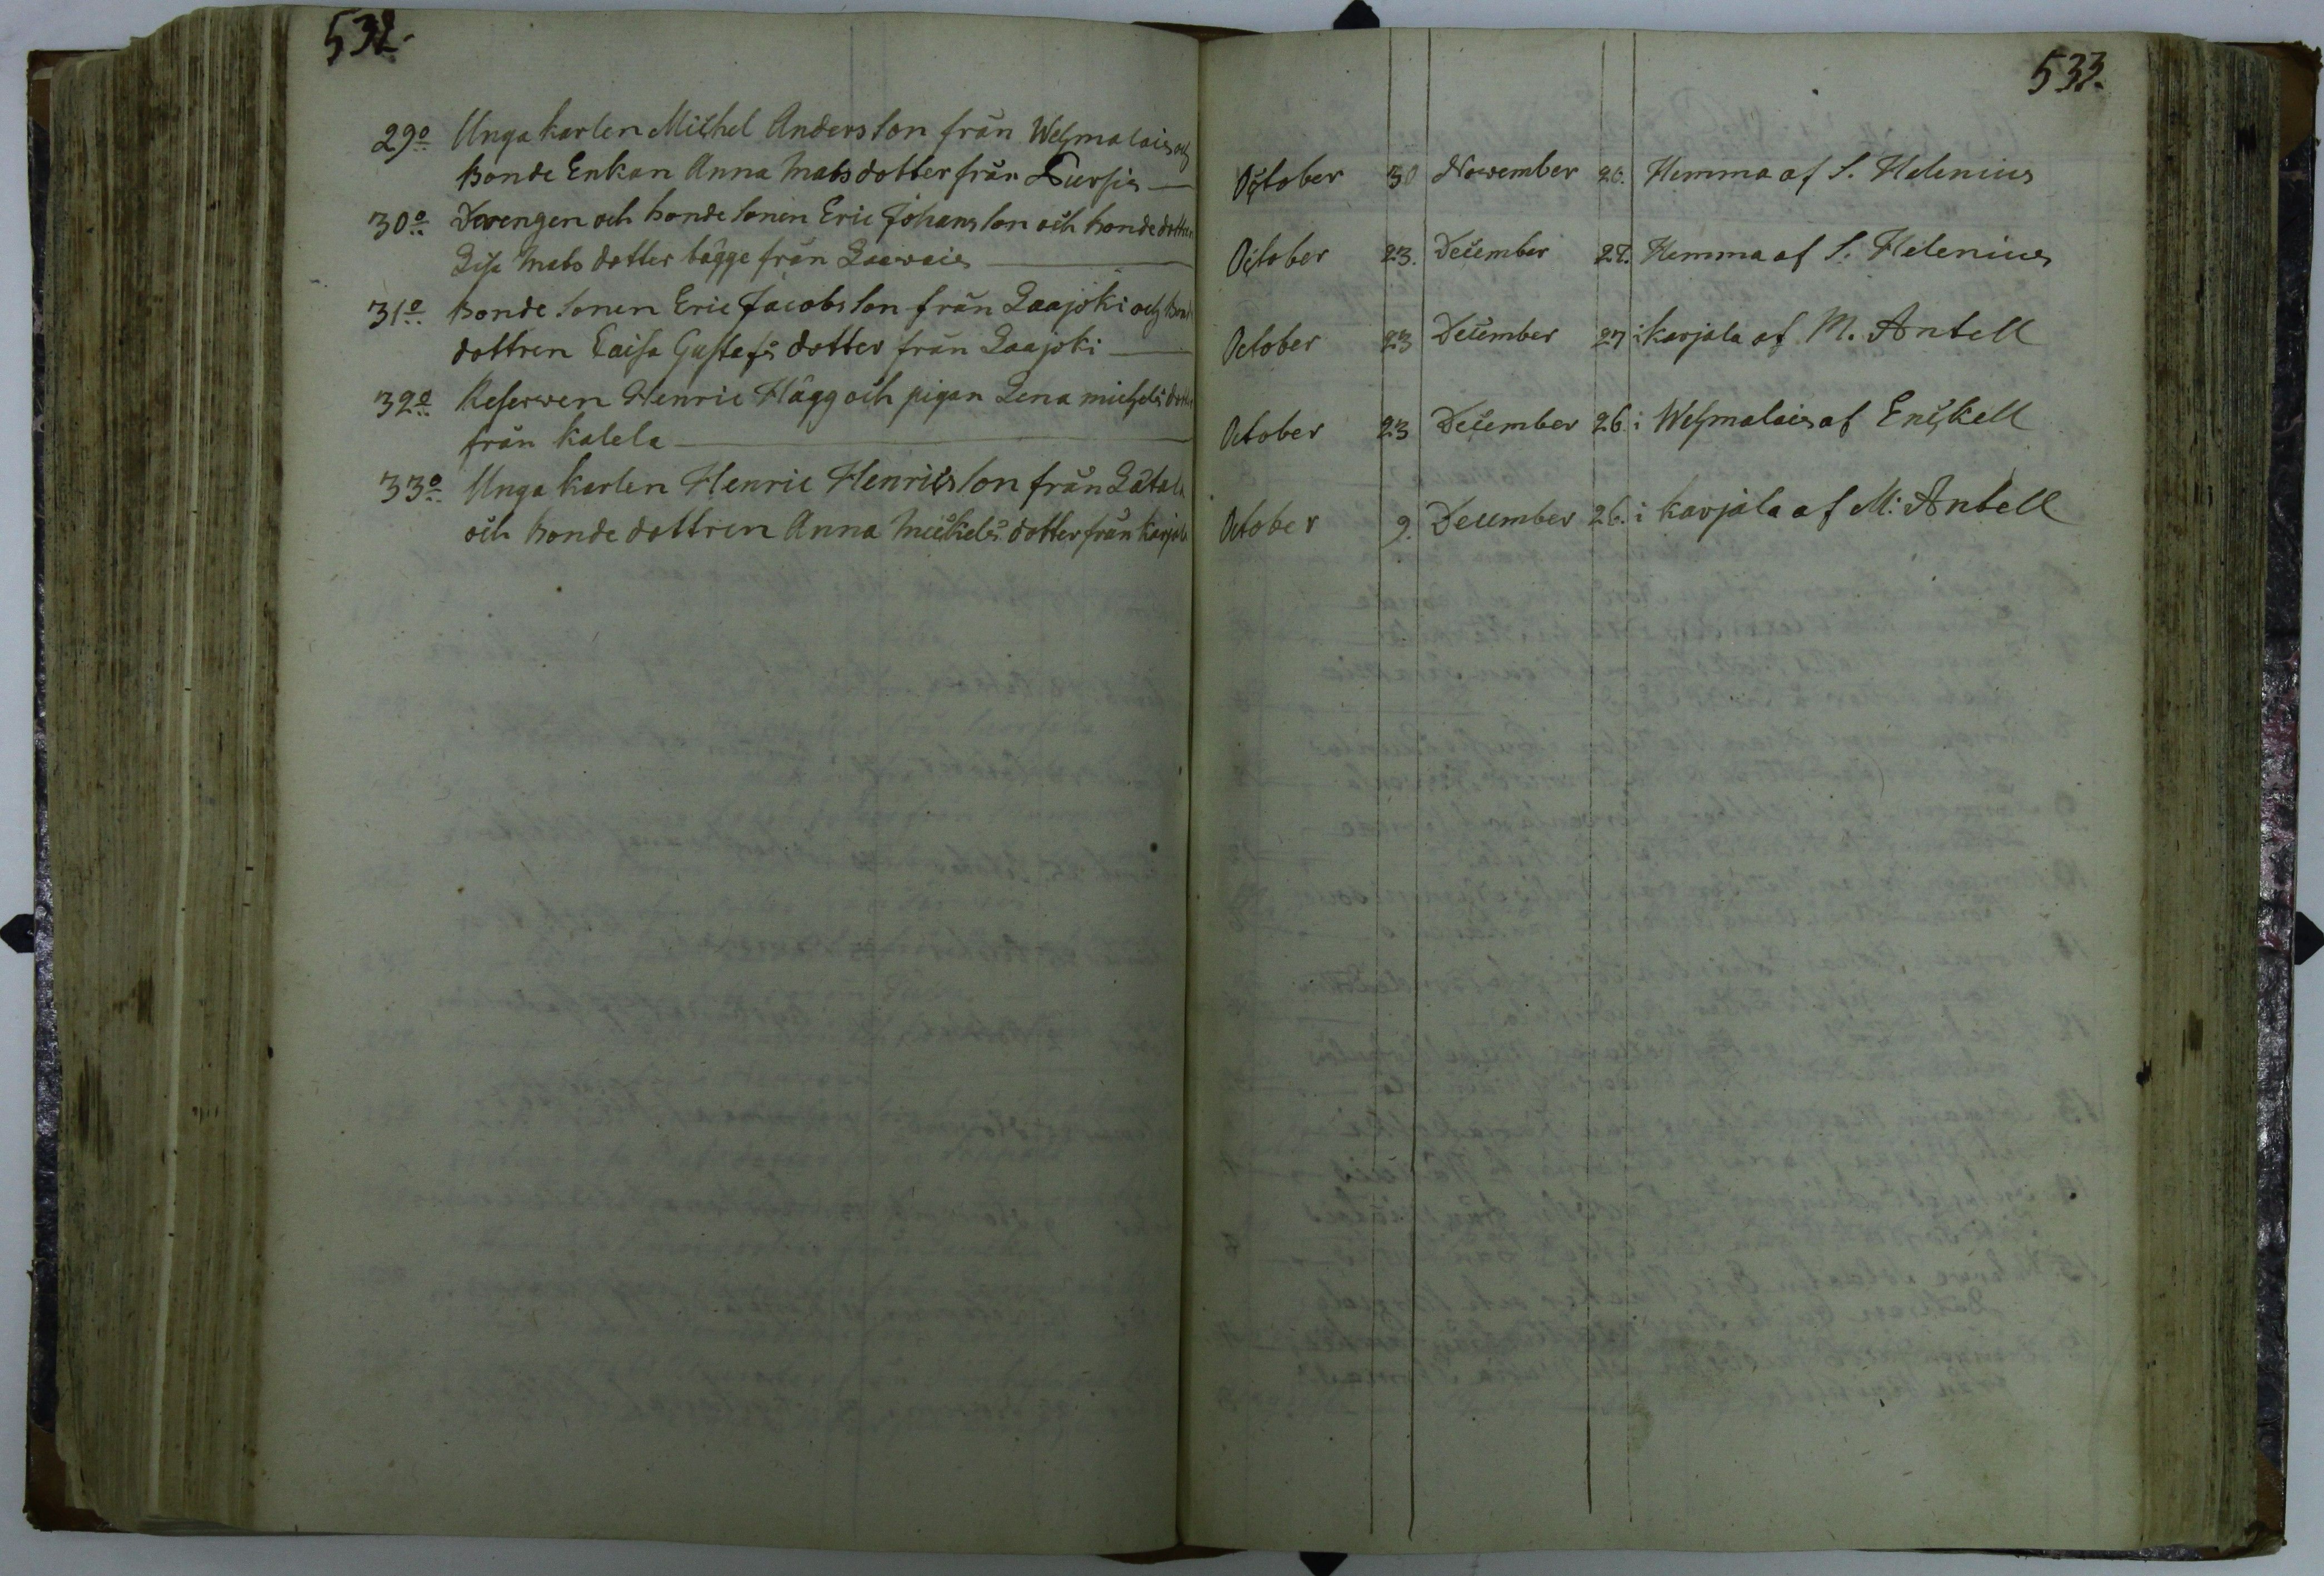 532.
29o Unga karlen Michel Andersson från Wehmalais och
bonde Enkan Anna Matsdotter från Kursis
30o Drengen och bondesonen Eric Johansson och bondedottren
Lisa Matsdotter bägge från Laavais
31o bondesonen Eric Jacobsson från Laajoki och bonde
dottren Caisa Gustafsdotter från Laajoki
32o Reserven Henric Hägg och pigan Lena Michelsdotter
från Kalela
33o Unga karlen Henric Henricsson från Lätala
och bondedottren Anna Mickelsdotter från Karjala
533.
October 30 November 20. Hemma af S. Helenius
October 23. December 27. Hemma af S. Helenius
October 23 December 27 i karjala af M. Antell
October 23 December 26 i Wehmalais af Enckell
October 9. December 26. i karjala af M: Antell